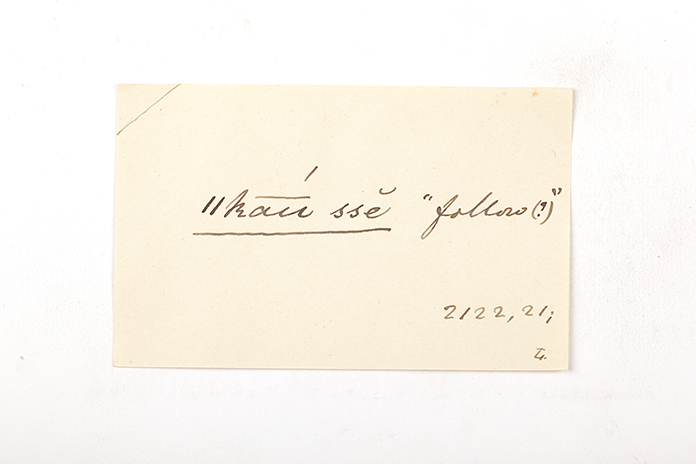 ǁkā́ü ssĕ "follow(?)"
2122, 21;
L.